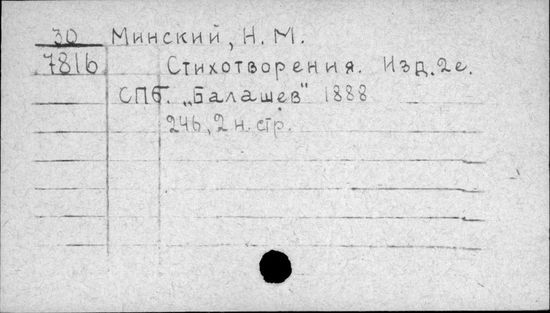 30 Минский, Н. М.
7816 Стихотворения. Изд. 2е.
СПб. „Балашев" 1888
246, 2 н. стр.